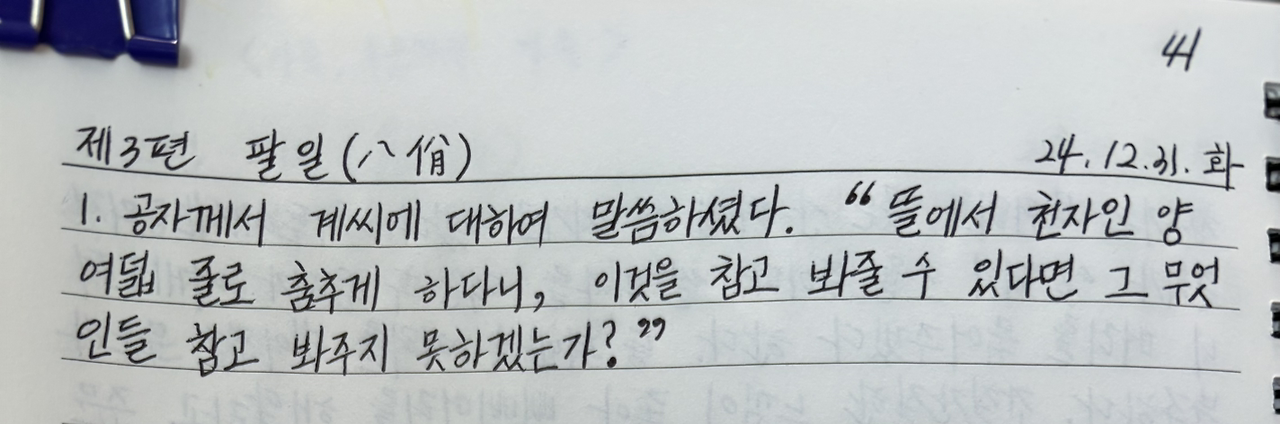 41
제3편 팔일(八佾) 24.12.31. 화
1. 공자께서 계씨에 대하여 말씀하셨다. “뜰에서 천자인 양
여덟 줄로 춤추게 하다니, 이것을 참고 봐줄 수 있다면 그 무엇
인들 참고 봐주지 못하겠는가?”